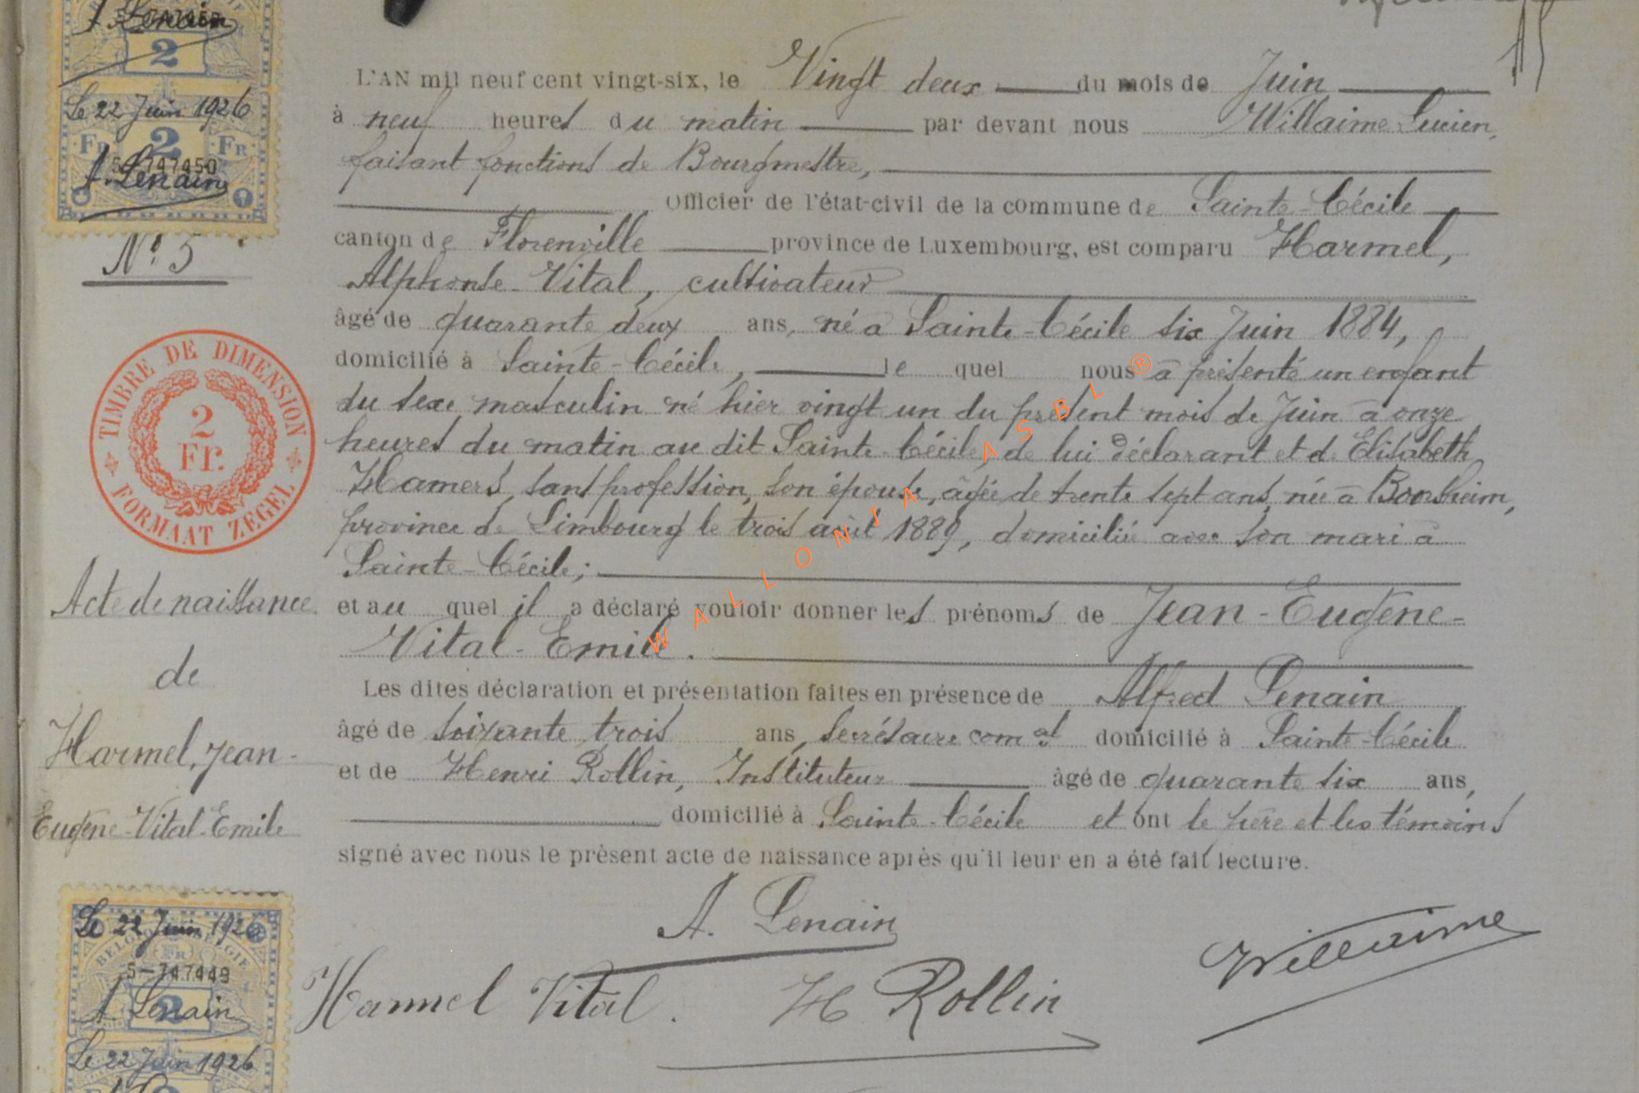 A. Lenain
2
Le 22 Juin 1926
Fr 2 Fr
5-747450
A. Lenain
N° 5
TIMBRE DE DIMENSION
2
Fr.
FORMAAT ZEGEL
Acte de naissance
de
Harmel, Jean-
Eugène-Vital-Emile
Le 22 Juin 1926
5-747449
2
A. Lenain
Le 22 Juin 1926
L'AN mil neuf cent vingt-six, le Vingt deux du mois de Juin
à neuf heures du matin par devant nous Willaime Lucien,
faisant fonctions de Bourgmestre,
Officier de l'état-civil de la commune de Sainte-Cécile
canton de Florenville province de Luxembourg, est comparu Harmel,
Alphonse-Vital, cultivateur
âgé de quarante deux ans, né à Sainte-Cécile six Juin 1884,
domicilié à Sainte-Cécile, le quel nous a présenté un enfant
du sexe masculin né hier vingt un du présent mois de Juin à onze
heures du matin au dit Sainte-Cécile, de lui déclarant et de Elisabeth
Hamers, sans profession, son épouse, âgée de trente sept ans, née à
province de Limbourg le trois août 1889, domiciliée avec son mari à
Sainte-Cécile;
et au quel il a déclaré vouloir donner les prénoms de Jean-Eugène-
Vital-Emile.
Les dites déclaration et présentation faites en présence de Alfred Lenain
âgé de soixante trois ans, secrétaire com al domicilié à Sainte-Cécile
et de Henri Rollin, Instituteur âgé de quarante six ans,
domicilié à Sainte-Cécile et ont le père et les témoins
signé avec nous le présent acte de naissance après qu'il leur en a été fait lecture.
A. Lenain
Willaime
Harmel Vital. H Rollin
WALLONIA ASBL ®